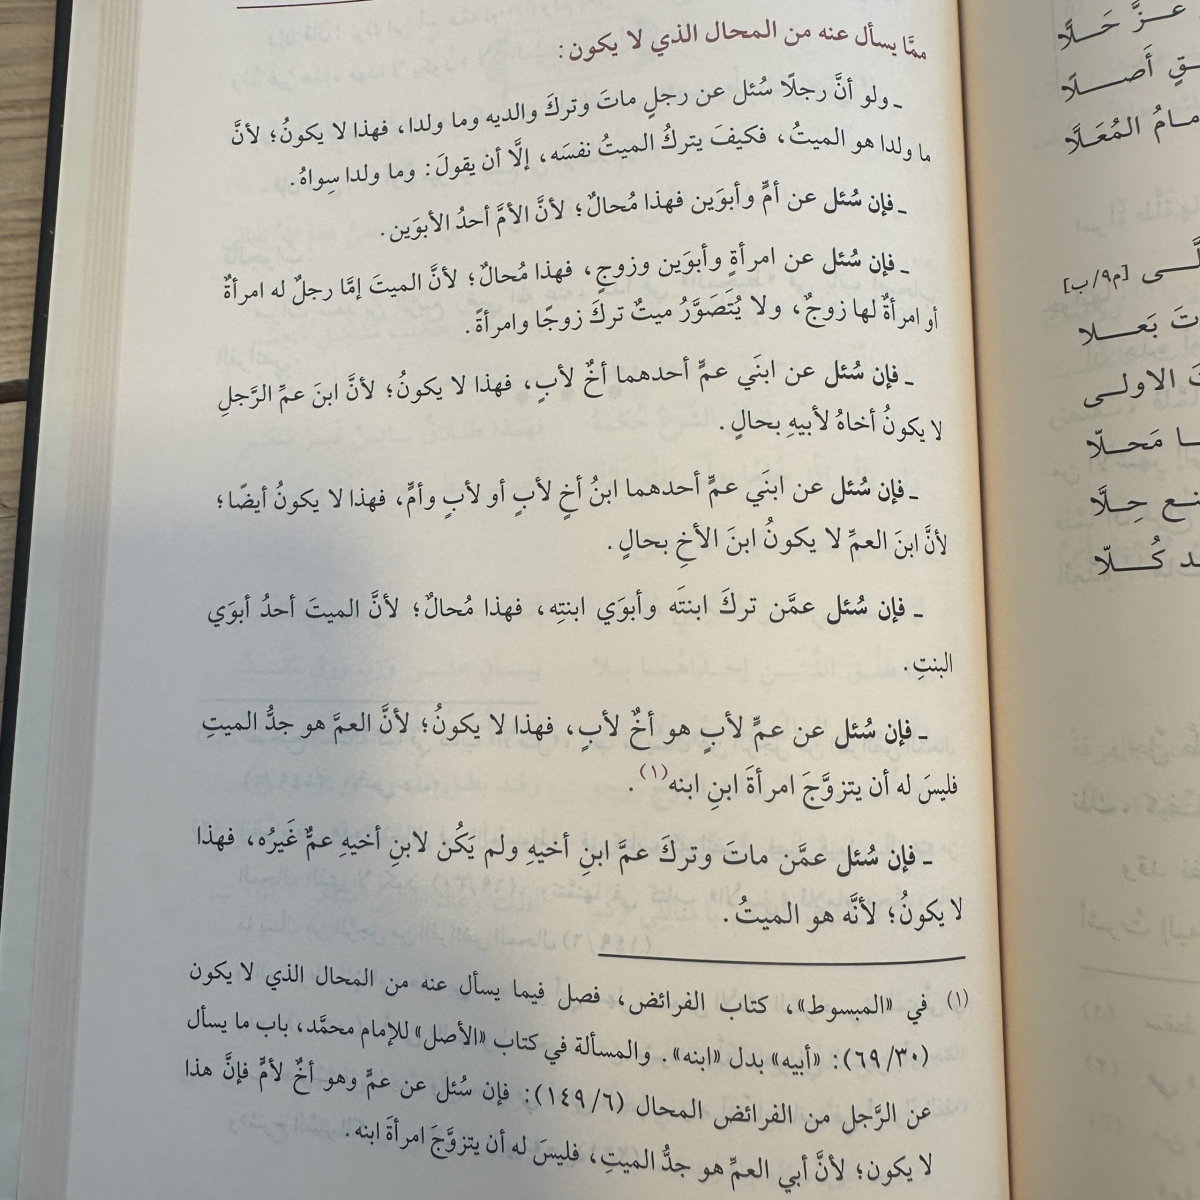 ممَّا يسأل عنه من المحال الذي لا يكون:
ـ ولو أنَّ رجلًا سُئل عن رجلٍ ماتَ وتركَ والديه وما ولدا، فهذا لا يكونُ؛ لأنَّ
ما ولدا هو الميتُ، فكيفَ يتركُ الميتُ نفسَه، إلَّا أن يقولَ: وما ولدا سِواهُ.
ـ فإن سُئل عن أمٍّ وأبوَين فهذا مُحالٌ؛ لأنَّ الأمَّ أحدُ الأبوَين.
ـ فإن سُئل عن امرأةٍ وأبوَين وزوجٍ، فهذا مُحالٌ؛ لأنَّ الميتَ إمَّا رجلٌ له امرأةٌ
أو امرأةٌ لها زوجٌ، ولا يُتَصَوَّرُ ميتٌ تركَ زوجًا وامرأةً.
ـ فإن سُئل عن ابنَي عمٍّ أحدهما أخٌ لأبٍ، فهذا لا يكونُ؛ لأنَّ ابنَ عمِّ الرَّجلِ
لا يكونُ أخاهُ لأبيهِ بحالٍ.
ـ فإن سُئل عن ابنَي عمٍّ أحدهما ابنُ أخٍ لأبٍ أو لأبٍ وأمٍّ، فهذا لا يكونُ أيضًا؛
لأنَّ ابنَ العمِّ لا يكونُ ابنَ الأخِ بحالٍ.
ـ فإن سُئل عمَّن تركَ ابنتَه وأبوَي ابنتِه، فهذا مُحالٌ؛ لأنَّ الميتَ أحدُ أبوَي
البنتِ.
ـ فإن سُئل عن عمٍّ لأبٍ هو أخٌ لأبٍ، فهذا لا يكونُ؛ لأنَّ العمَّ هو جدُّ الميتِ
فليسَ له أن يتزوَّجَ امرأةَ ابنِ ابنه(١).
ـ فإن سُئل عمَّن ماتَ وتركَ عمَّ ابنِ أخيهِ ولم يَكُن لابنِ أخيهِ عمٌّ غَيرُه، فهذا
لا يكونُ؛ لأنَّه هو الميتُ.
(١) في «المبسوط»، كتاب الفرائض، فصل فيما يسأل عنه من المحال الذي لا يكون
(٦٩/٣٠): «أبيه» بدل «ابنه». والمسألة في كتاب «الأصل» للإمام محمَّد، باب ما يسأل
عن الرَّجل من الفرائض المحال (١٤٩/٦): فإن سُئل عن عمٍّ وهو أخٌ لأمٍّ فإنَّ هذا
لا يكون؛ لأنَّ أبي العمِّ هو جدُّ الميتِ، فليسَ له أن يتزوَّجَ امرأةَ ابنه.
عـــزَّ حَـلَّا
ـقٍ أَصـــلًا
مامُ المُعَـلَّا
ـلَّـــى [م٩/ب]
تَ بَعـــلا
تَ الاولـــى
ـا مَحـــلّا
ـنـع حِـلَّا
ـد كُـــلّا